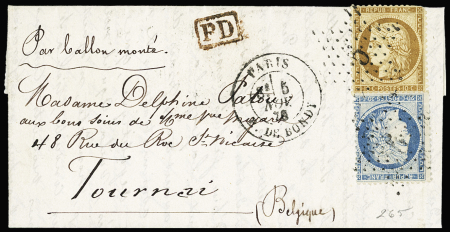 Par ballon monté.
PD
REPUB. FRANC.
PARIS
5
NOV.
R. DE BONDY
Madame Delphine
aux bons soins de Mme
48 Rue du Roc St Nicaise
Tournai
(Belgique)
265